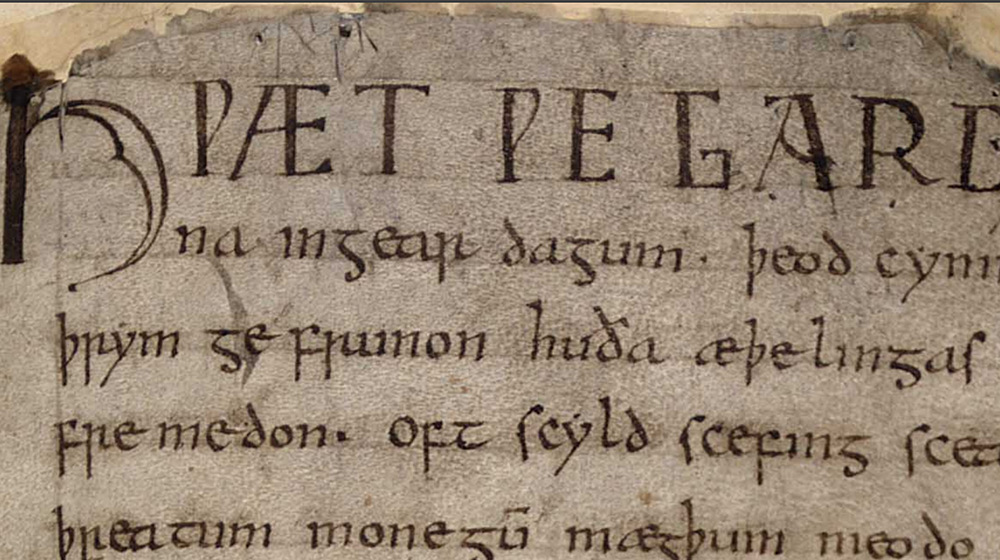 HǷÆT ǷE GARD
na ingear dagum. þeod cyni
þrym ge frunon huða æþelingas
fremedon. oft scyld scefing scea
þreatum monegū mægþum meodo